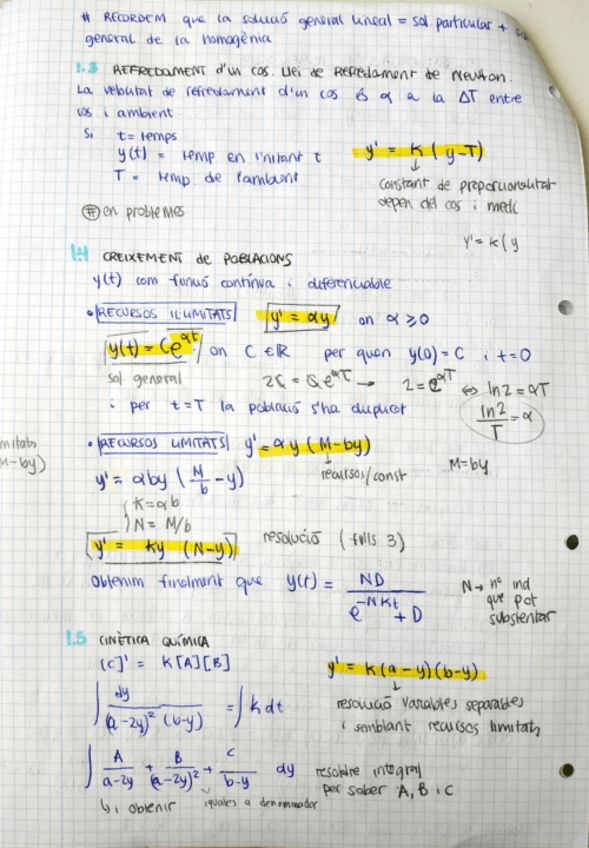 # RECORDEM que la solució general lineal = sol. particular + sol
general de la homogènia
1.3 REFREDAMENT d'un cos. Llei de Refredament de Newton.
La velocitat de refredament d'un cos és α a la ΔT entre
cos i ambient.
Si t = temps
y(t) = temp en l'instant t
T = temp. de l'ambient
y' = k (y-T)
↓
constant de proporcionalitat
depen del cos i medi
# en problemes
y' = k(y
1.4 CREIXEMENT de POBLACIONS
y(t) com funció contínua i diferenciable
• RECURSOS IL·LIMITATS y' = αy on α ≥ 0
y(t) = Ce^αt on C ∈ ℝ per quan y(0) = C i t=0
sol general 2C = C e^αT → 2 = e^αT ⇔ ln2 = αT
i per t=T la població s'ha duplicat ln2/T = α
• RECURSOS LIMITATS y' = αy (M-by)
mitats
M-by)
↓
recursos/const
M=by
y' = αby (M/b - y)
K = αb
N = M/b
y' = ky (N-y) resolució (fulls 3)
Obtenim finalment que y(t) = ND / (e^-NKt + D)
N → nº ind
que pot
substentar
1.5 CINÈTICA QUÍMICA
[C]' = K[A][B]
y' = k(a-y)(b-y)
↓
resolució variables separables
i semblant recursos limitats
∫ dy / (a-2y)² (b-y) = ∫ k dt
∫ A/(a-2y) + B/(a-2y)² + C/(b-y) dy resoldre integral
per saber A, B i C
↳ obtenir iguales a denominador